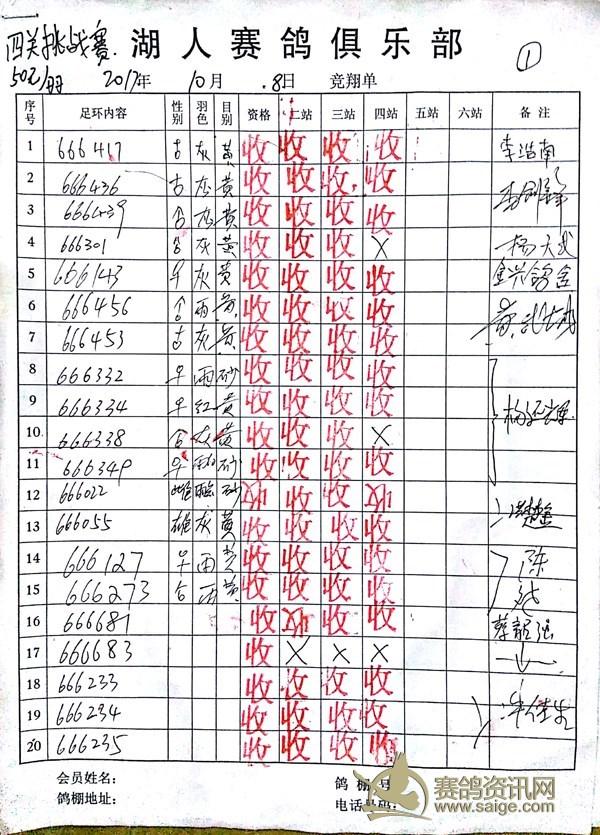 四关挑战赛. 湖人赛鸽俱乐部 ①
50元/羽 2017年 10月 8日 竞翔单
序号 足环内容 性别 羽色 目别 资格 二站 三站 四站 五站 六站 备注
1 666417 灰 黄 收 收 收 收 李浩南
2 666436 灰 黄 收 收 收 收
3 666439 灰 黄 收 收 收 收
4 666301 灰 黄 收 收 收 × 杨天武
5 666143 灰 黄 收 收 收 收 金兴鸽舍
6 666456 雨 黄 收 收 收 收
7 666453 灰 黄 收 收 收 收
8 666332 雨 砂 收 收 收 收
9 666334 红 黄 收 收 收 收
10 666338 灰 黄 收 收 收 ×
11 666349 砂 收 收 收 收
12 666022 雌 砂 收 收 收 收
13 666055 雄 灰 黄 收 收 收 收
14 666127 雨 黄 收 收 收 收 陈
15 666273 雨 黄 收 收 收 收
16 666681 收 收 收 收
17 666683 收 × × ×
18 666233 收 收 收 收
19 666234 收 收 收 收
20 666235 收 收 收 收
会员姓名: 鸽棚号
鸽棚地址: 电话号码:
赛鸽资讯网
www.saige.com